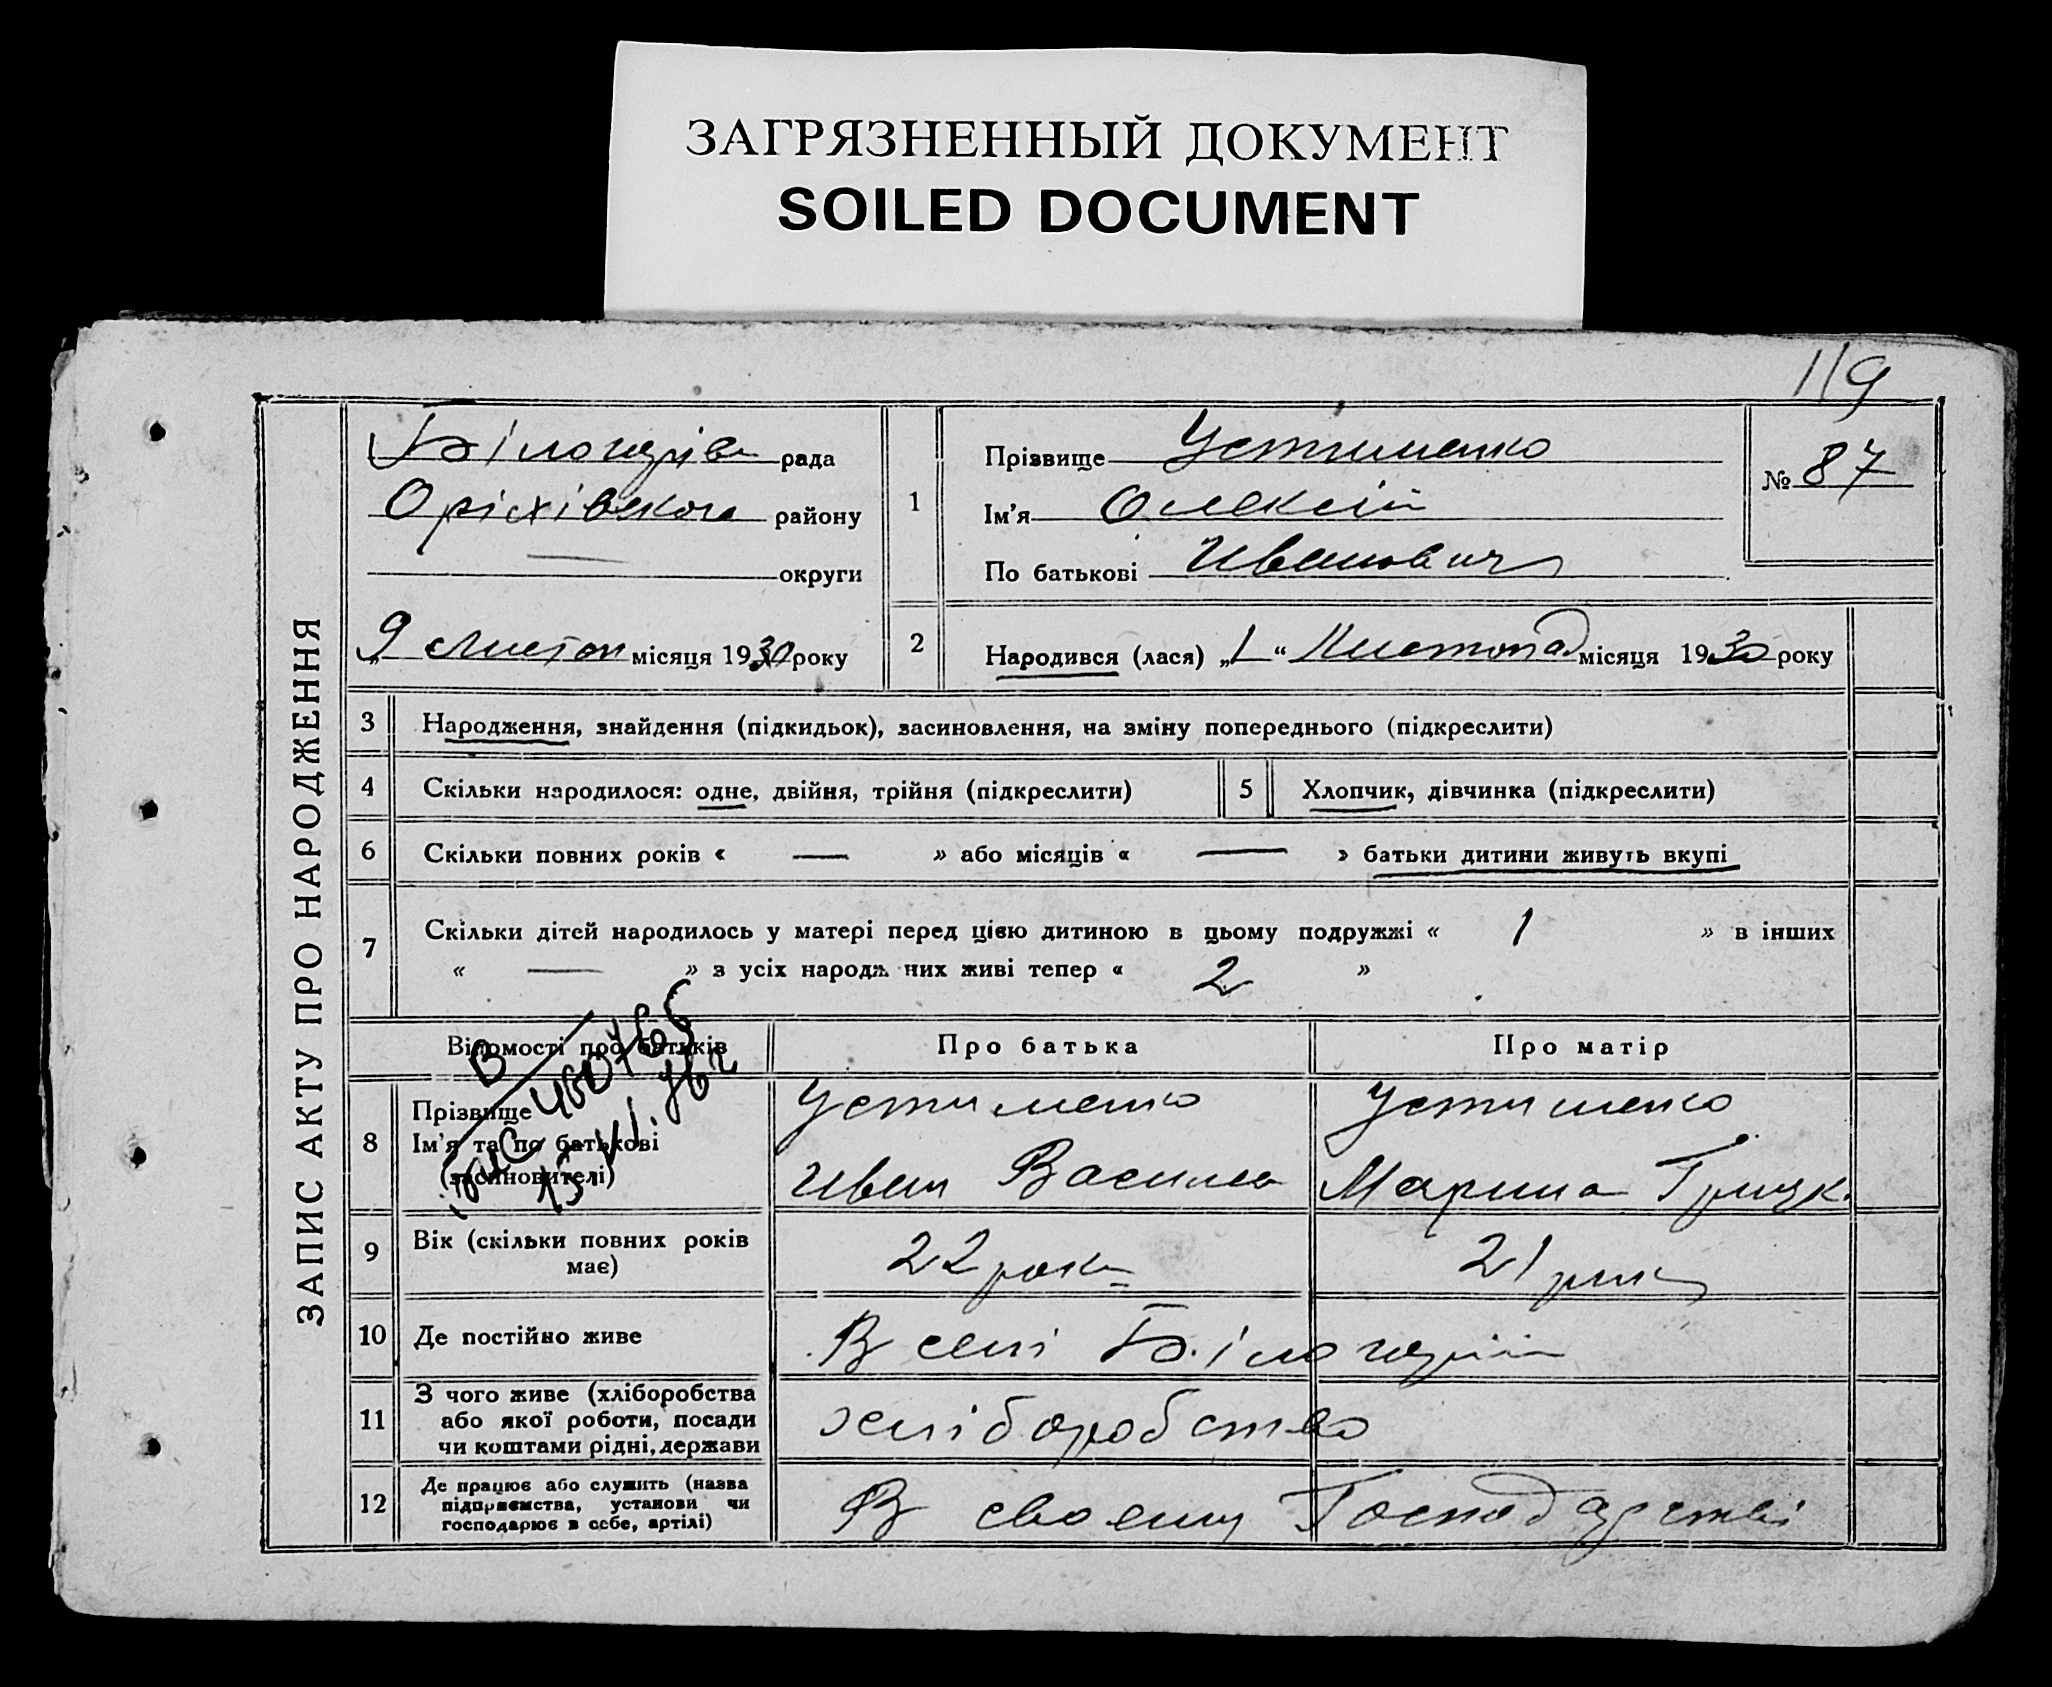 ЗАГРЯЗНЕННЫЙ ДОКУМЕНТ
SOILED DOCUMENT
119
ЗАПИС АКТУ ПРО НАРОДЖЕННЯ
рада
Оріхівського району
округи
„9 листоп місяця 1930 року
1
Прізвище Устименко
Ім'я Олексій
По батькові Иванович
№ 87
2 Народився (лася) „1“ Листопад місяця 1930 року
3 Народження, знайдення (підкидьок), засиновлення, на зміну попереднього (підкреслити)
4 Скільки народилося: одне, двійня, трійня (підкреслити)
5 Хлопчик, дівчинка (підкреслити)
6 Скільки повних років « — » або місяців « — » батьки дитини живуть вкупі
7 Скільки дітей народилось у матері перед цією дитиною в цьому подружжі « 1 » в інших
« — » з усіх народж них живі тепер « 2 »
Відомості про батьків Про батька Про матір
8 Прізвище
Ім'я та по батькові
(засиновителі)
Устименко
Иван Василев
Устименко
Марина Грицк.
9 Вік (скільки повних років
має)
22 роки
21 рик
10 Де постійно живе
В селі
11 З чого живе (хліборобства
або якої роботи, посади
чи коштами рідні, держави
хліборобство
12 Де працює або служить (назва
підприємства, установи чи
господарює в себе, артілі)
В своему Господарстві